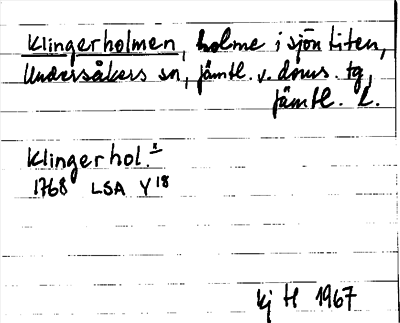 Klingerholmen, holme i sjön Liten,
Undersåkers sn, Jämtl. v. doms. tg,
Jämtl. L.
Klingerhol.x
1768 LSA Y 18
kj H 1967